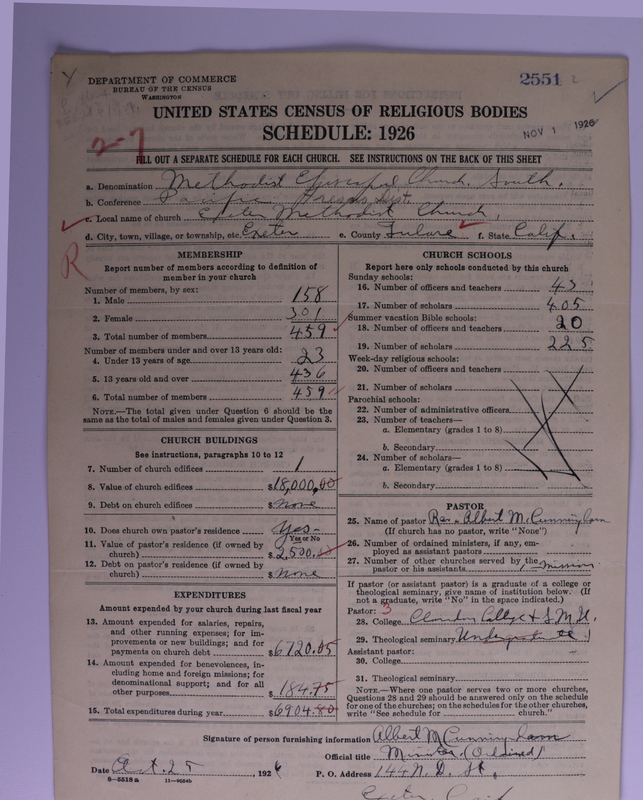 DEPARTMENT OF COMMERCE
BUREAU OF THE CENSUS
WASHINGTON
2551 2
UNITED STATES CENSUS OF RELIGIOUS BODIES
SCHEDULE: 1926
NOV 1 1926
2-7
FILL OUT A SEPARATE SCHEDULE FOR EACH CHURCH. SEE INSTRUCTIONS ON THE BACK OF THIS SHEET
a. Denomination Methodist Episcopal Church, South.
b. Conference Pacific Fresno Dist.
c. Local name of church Exeter Methodist Church,
d. City, town, village, or township, etc. Exeter e. County Tulare f. State Calif.
R
MEMBERSHIP
Report number of members according to definition of
member in your church
Number of members, by sex:
1. Male 158
2. Female 301
3. Total number of members 459
Number of members under and over 13 years old:
4. Under 13 years of age 23
5. 13 years old and over 436
6. Total number of members 459
NOTE.—The total given under Question 6 should be the
same as the total of males and females given under Question 3.
CHURCH BUILDINGS
See instructions, paragraphs 10 to 12
7. Number of church edifices 1
8. Value of church edifices $18,000,00
9. Debt on church edifices $None
10. Does church own pastor's residence Yes-
Yes or No
11. Value of pastor's residence (if owned by
church) $2,500.00
12. Debt on pastor's residence (if owned by
church) $None
EXPENDITURES
Amount expended by your church during last fiscal year
13. Amount expended for salaries, repairs,
and other running expenses; for im-
provements or new buildings; and for
payments on church debt $6720.05
14. Amount expended for benevolences, in-
cluding home and foreign missions; for
denominational support; and for all
other purposes 184.75
15. Total expenditures during year $6904.80
CHURCH SCHOOLS
Report here only schools conducted by this church
Sunday schools:
16. Number of officers and teachers 43
17. Number of scholars 405
Summer vacation Bible schools:
18. Number of officers and teachers 20
19. Number of scholars 225
Week-day religious schools:
20. Number of officers and teachers
21. Number of scholars
Parochial schools:
22. Number of administrative officers
23. Number of teachers—
a. Elementary (grades 1 to 8)
b. Secondary
24. Number of scholars—
a. Elementary (grades 1 to 8)
b. Secondary
PASTOR
25. Name of pastor Rev. Albert M. Cunningham
(If church has no pastor, write "None")
26. Number of ordained ministers, if any, em-
ployed as assistant pastors
27. Number of other churches served by the
pastor or his assistants 1 mission
If pastor (or assistant pastor) is a graduate of a college or
theological seminary, give name of institution below. (If
not a graduate, write "No" in the space indicated.)
Pastor: 3
28. College College & S.M.U.
29. Theological seminary Undergraduate
Assistant pastor:
30. College
31. Theological seminary
NOTE.—Where one pastor serves two or more churches,
Questions 28 and 29 should be answered only on the schedule
for one of the churches; on the schedules for the other churches,
write "See schedule for church."
Signature of person furnishing information Albert M Cunningham
Official title Minister (Ordained)
Date Oct. 25, 1926 P. O. Address 144 N. D. St,
8-5518a 11-9554b
Exeter, Calif